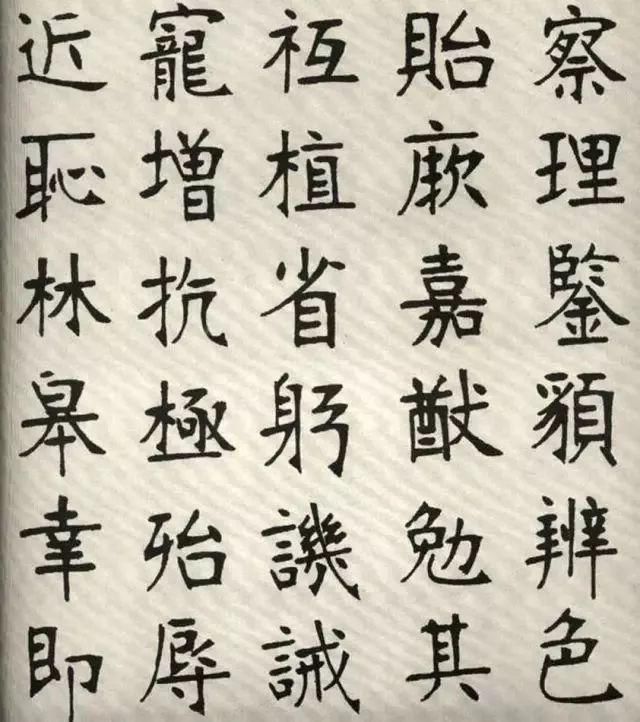 察理鑒䫉辨色
貽厥嘉猷勉其
祗植省躬譏誡
寵增抗極殆辱
近恥林皋幸即